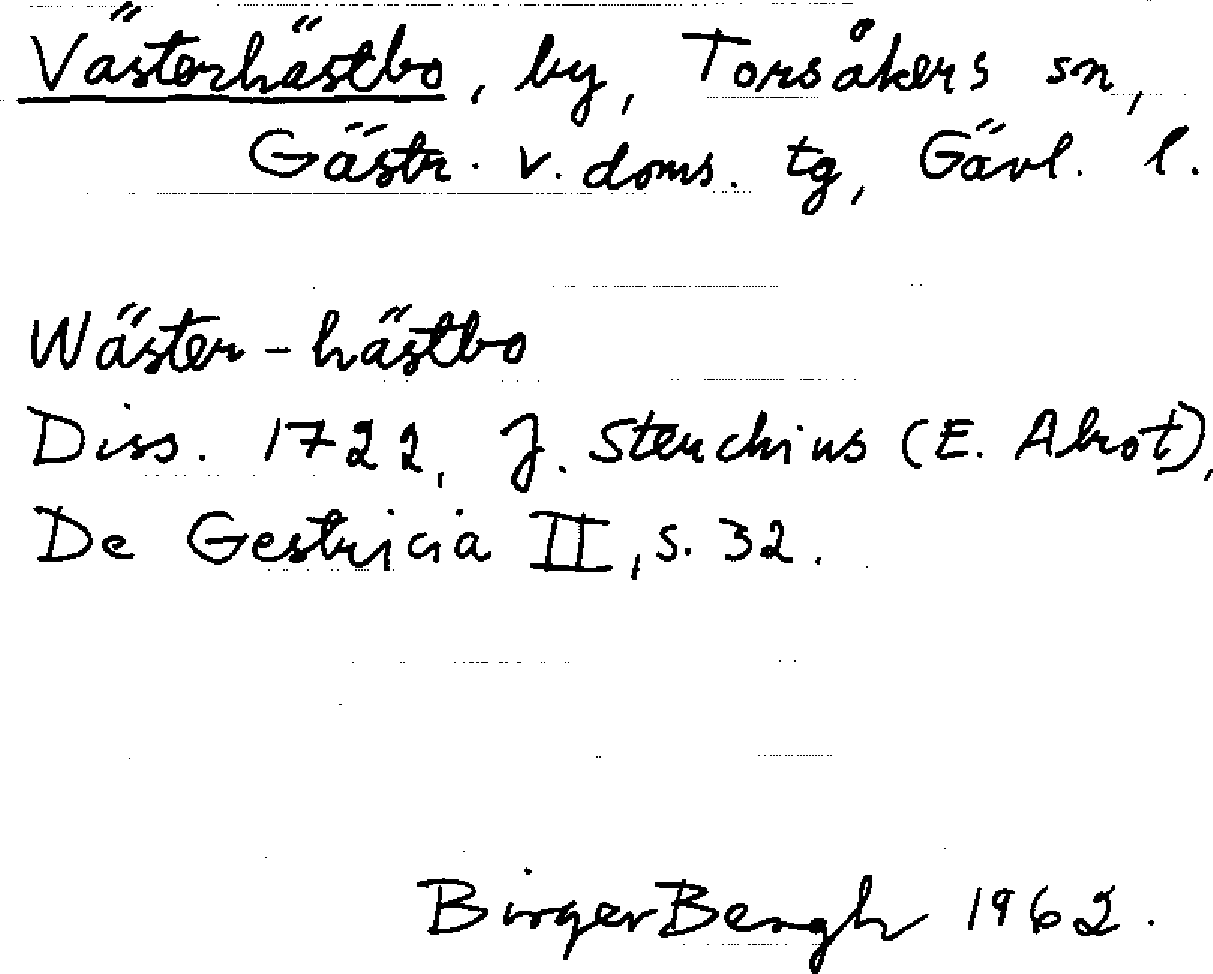 Västerhästbo, by, Torsåkers sn,
Gästr. v. doms. tg, Gävl. l.
Wäster-hästbo
Diss. 1722, J. Steuchius (E. Alrot),
De Gestricia II, s. 32.
Birger Bergh 1962.